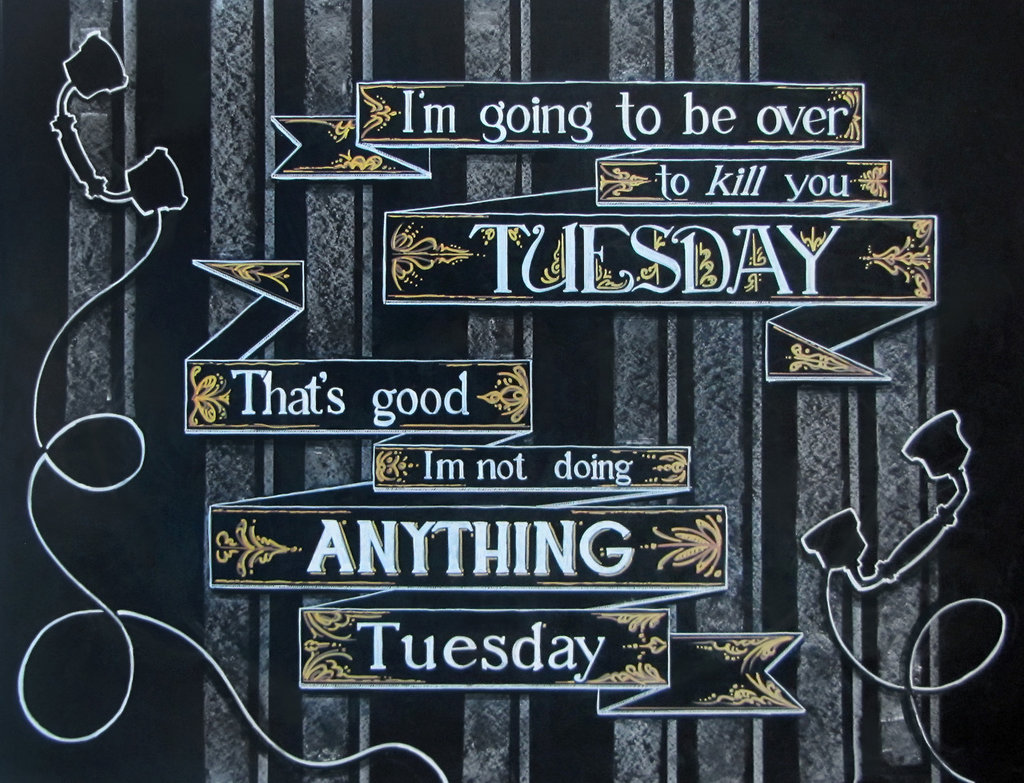 I'm going to be over
to kill you
TUESDAY
That's good
Im not doing
ANYTHING
Tuesday